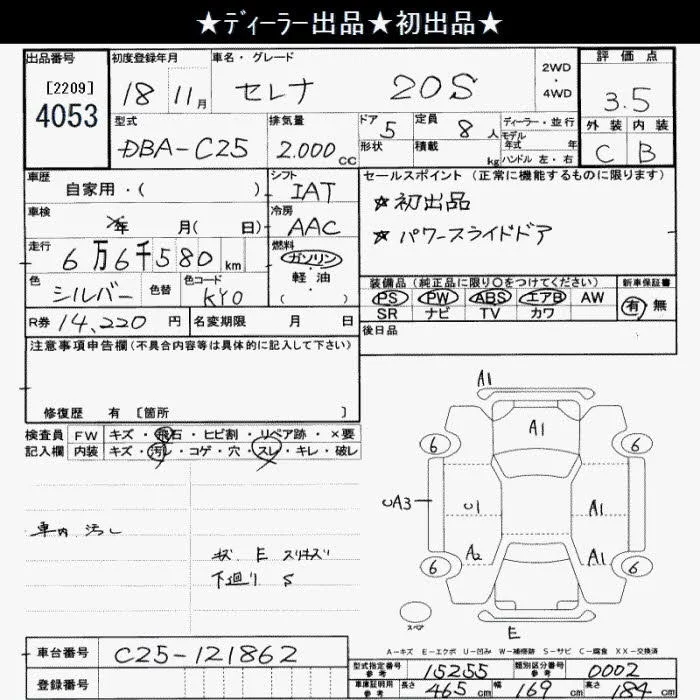 ★ディーラー出品★初出品★
出品番号
[2209]
4053
初度登録年月
18 11月
車名・グレード
セレナ 20S
2WD
・
4WD
評価点
3.5
外装 内装
C B
型式
DBA-C25
排気量
2.000cc
ドア 5
形状
定員 8人
積載 kg
ディーラー・並行
モデル年式 年
ハンドル 左・右
車歴
自家用・( )
シフト
IAT
車検
年 月( 日)
冷房
AAC
走行
6万6千580km
燃料
ガソリン
軽・油
( )
色
シルバー
色替
色コード
KY0
R券 14,220円
名変期限 月 日
セールスポイント(正常に機能するものに限ります)
★初出品
★パワースライドドア
装備品(純正品に限り〇をつけてください)
PS PW ABS エアB AW
SR ナビ TV カワ
新車保証書
有 無
後日品
注意事項申告欄(不具合内容等は具体的に記入して下さい)
修復歴 有 [箇所 ]
検査員
記入欄
FW キズ・飛石・ヒビ割・リペア跡・×要
内装 キズ・汚レ・コゲ・穴・スレ・キレ・破レ
車内 汚し
キズ E スリキズ
下廻り S
A1
A1
6 6
UA3
U1
A1
A2
A1
6 6
スペア
E
A-キズ E-エクボ U-凹み W-補修跡 S-サビ C-腐食 XX-交換済
車台番号
C25-121862
登録番号
型式指定番号
参考
15255
類別区分番号
参考
0002
車庫証明用
参考
長さ 465cm 幅 169cm 高さ 184cm